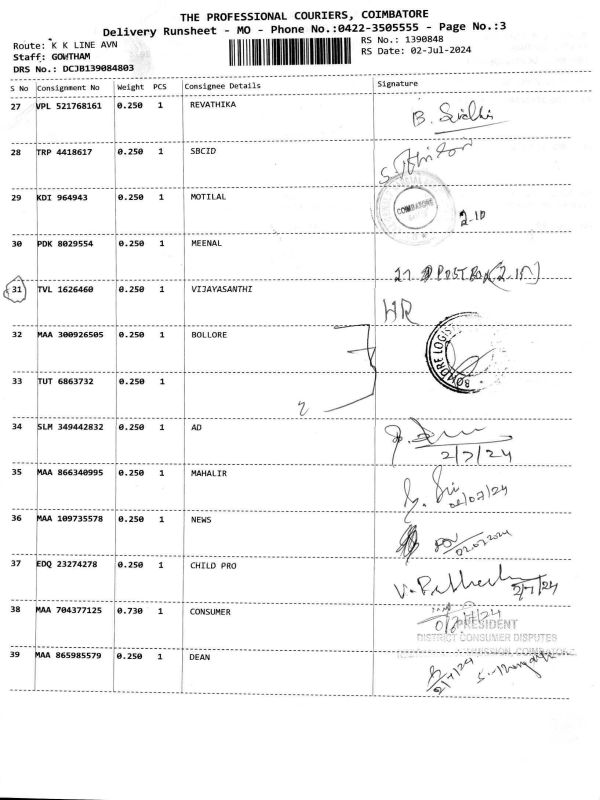 THE PROFESSIONAL COURIERS, COIMBATORE
Delivery Runsheet - MO - Phone No.:0422-3505555 - Page No.:3
Route: K K LINE AVN
RS No.: 1390848
Staff: GOWTHAM
RS Date: 02-Jul-2024
DRS No.: DCJB139084803
S No Consignment No Weight PCS Consignee Details Signature
27 VPL 521768161 0.250 1 REVATHIKA B.
28 TRP 4418617 0.250 1 SBCID
29 KDI 964943 0.250 1 MOTILAL COIMBATORE 2.10
30 PDK 8029554 0.250 1 MEENAL
31 TVL 1626460 0.250 1 VIJAYASANTHI HR
32 MAA 300926505 0.250 1 BOLLORE
33 TUT 6863732 0.250 1
34 SLM 349442832 0.250 1 AD 2/7/24
35 MAA 866340995 0.250 1 MAHALIR 02/07/24
36 MAA 109735578 0.250 1 NEWS 02.07.2024
37 EDQ 23274278 0.250 1 CHILD PRO 2/7/24
38 MAA 704377125 0.730 1 CONSUMER PRESIDENT
DISTRICT CONSUMER DISPUTES
39 MAA 865985579 0.250 1 DEAN 2/7/24